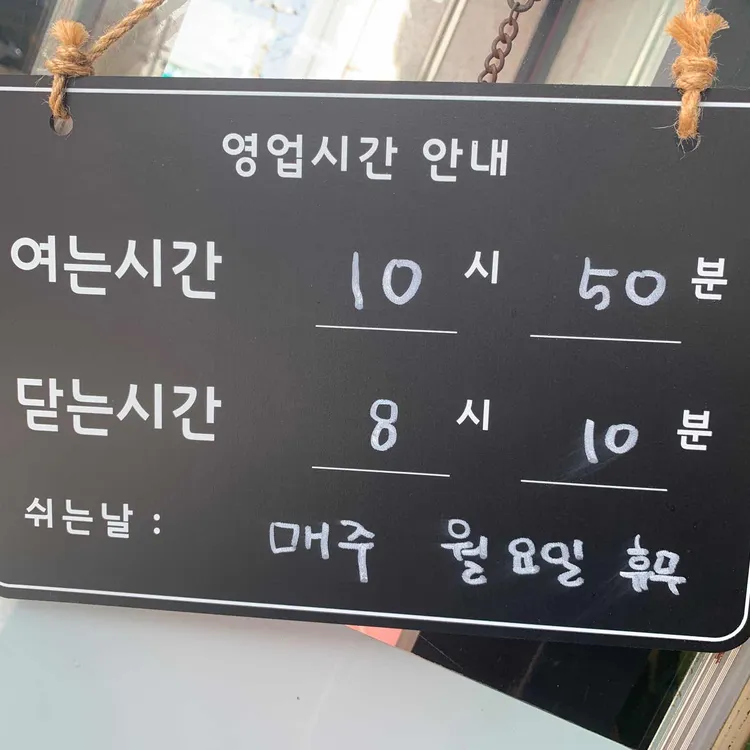 영업시간 안내
여는시간 10 시 50 분
닫는시간 8 시 10 분
쉬는날 : 매주 월요일 휴무